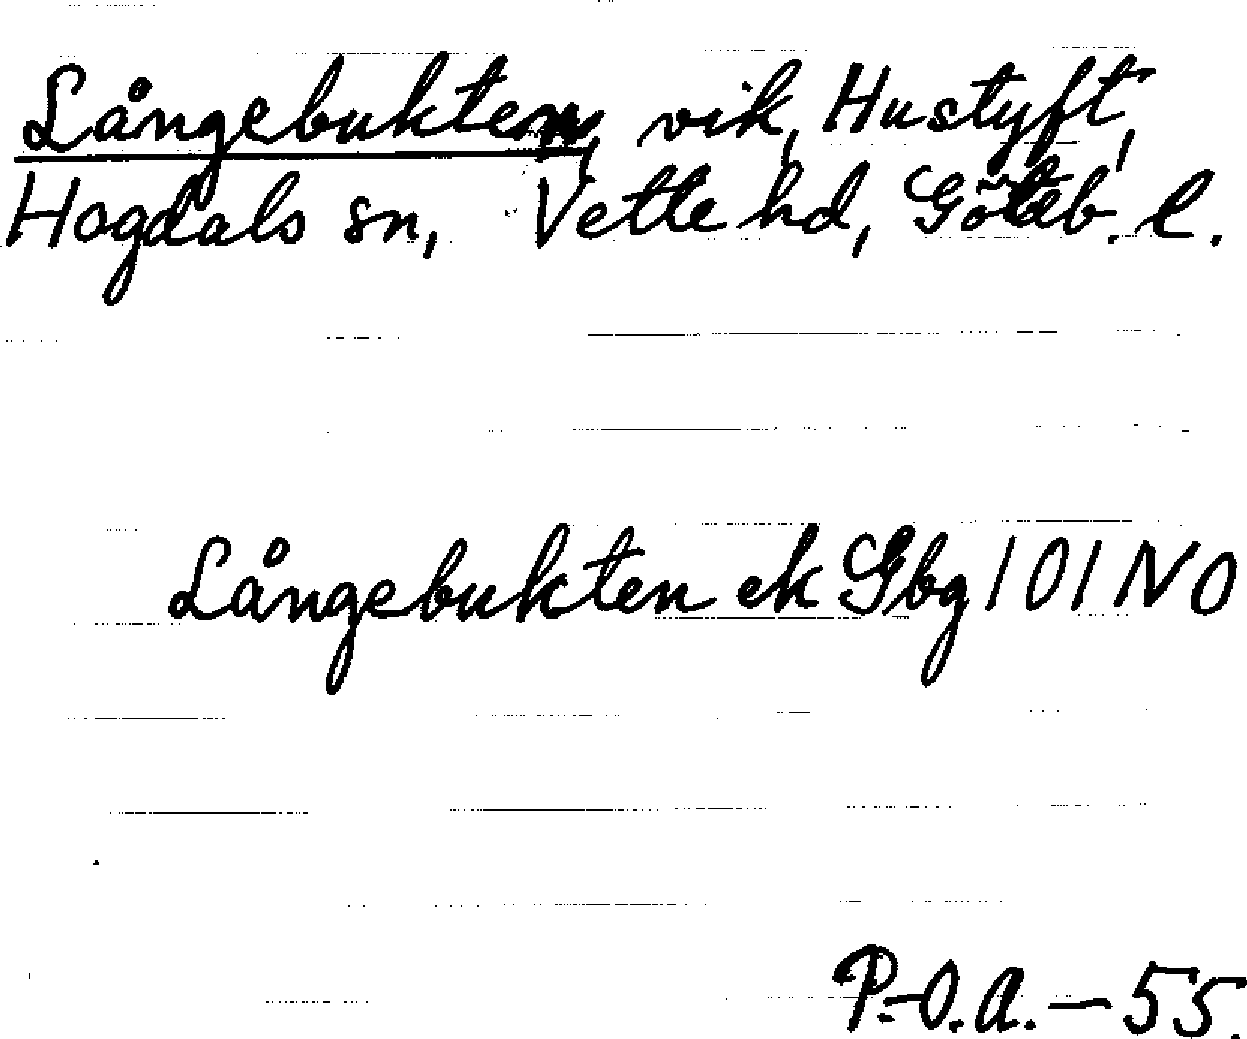 Långebukten, vik, Hustyft,
Hogdals sn, Vette hd, Göteb. l.
Långebukten ek Gbg 101 NO
P.-O.A. — 55.